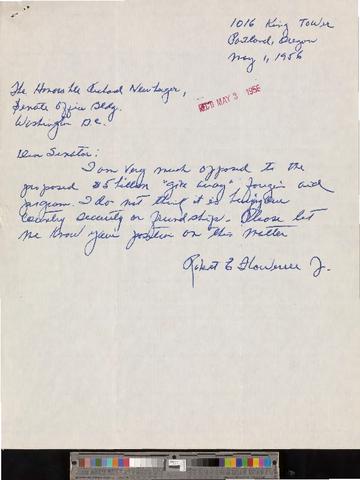 1016 King Tower
Portland, Oregon
May 1, 1956
The Honorable Richard Neuberger,
REC'D MAY 3 1956
Senate Office Bldg.
Washington D.C.
Dear Senator:
I am very much opposed to the
proposed $5 billion "give away" foreign aid
program. I do not think it is buying our
country security or friendship. Please let
me know your position on this matter
Robert E Flowerree Jr.